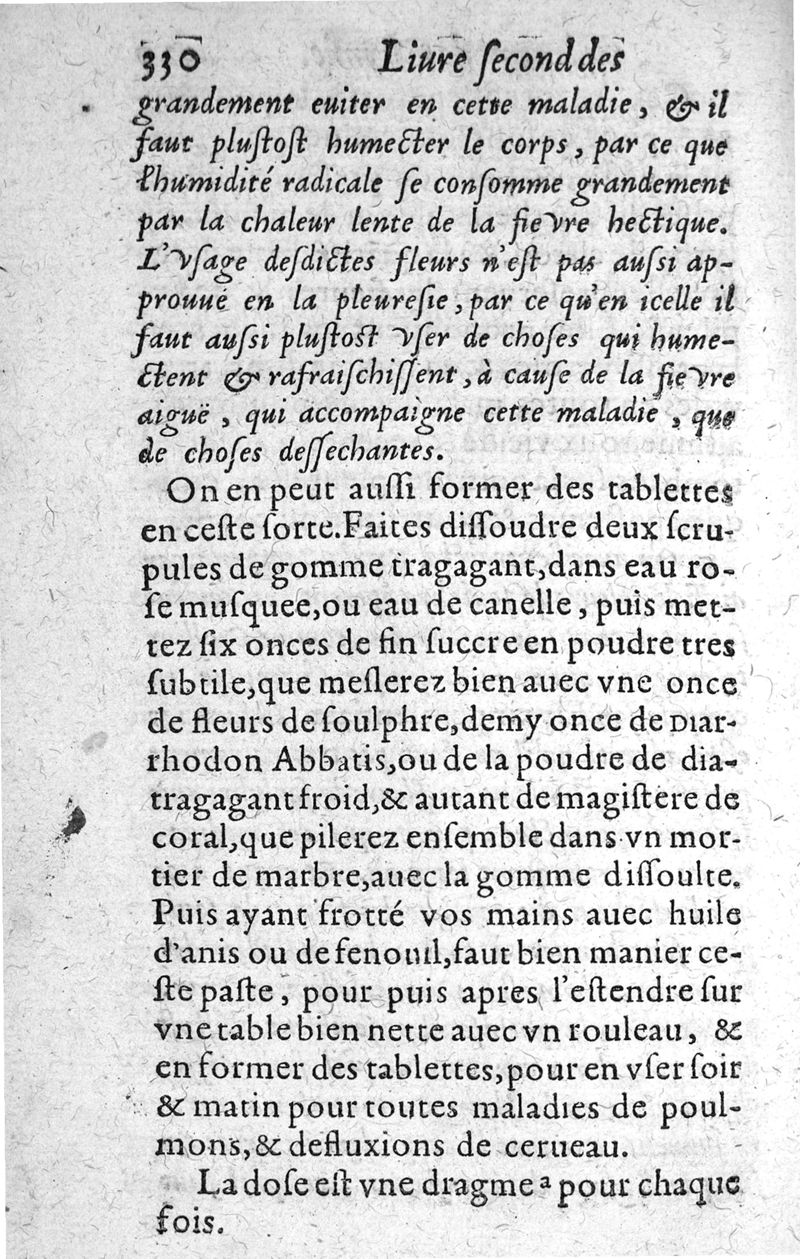 330 Liure ſecond des
grandement euiter en cette maladie, & il
faut pluſtoſt humecter le corps, par ce que
l'humidité radicale ſe conſomme grandement
par la chaleur lente de la fievre hectique.
L'vſage deſdictes fleurs n'eſt pas auſsi ap-
prouué en la pleureſie, par ce qu'en icelle il
faut auſsi pluſtoſt vſer de choſes qui hume-
ctent & rafraiſchiſſent, à cauſe de la fievre
aiguë, qui accompaigne cette maladie, que
de choſes deſſechantes.
On en peut auſſi former des tablettes
en ceſte ſorte. Faites diſſoudre deux ſcru-
pules de gomme tragagant, dans eau ro-
ſe muſquee, ou eau de canelle, puis met-
tez ſix onces de fin ſuccre en poudre tres
ſubtile, que meſlerez bien auec vne once
de fleurs de ſoulphre, demy once de Diar-
rhodon Abbatis, ou de la poudre de dia-
tragagant froid, & autant de magiſtere de
coral, que pilerez enſemble dans vn mor-
tier de marbre, auec la gomme diſſoulte.
Puis ayant frotté vos mains auec huile
d'anis ou de fenouil, faut bien manier ce-
ſte paſte, pour puis apres l'eſtendre ſur
vne table bien nette auec vn rouleau, &
en former des tablettes, pour en vſer ſoir
& matin pour toutes maladies de poul-
mons, & defluxions de cerueau.
La doſe eſt vne dragme a pour chaque
fois.